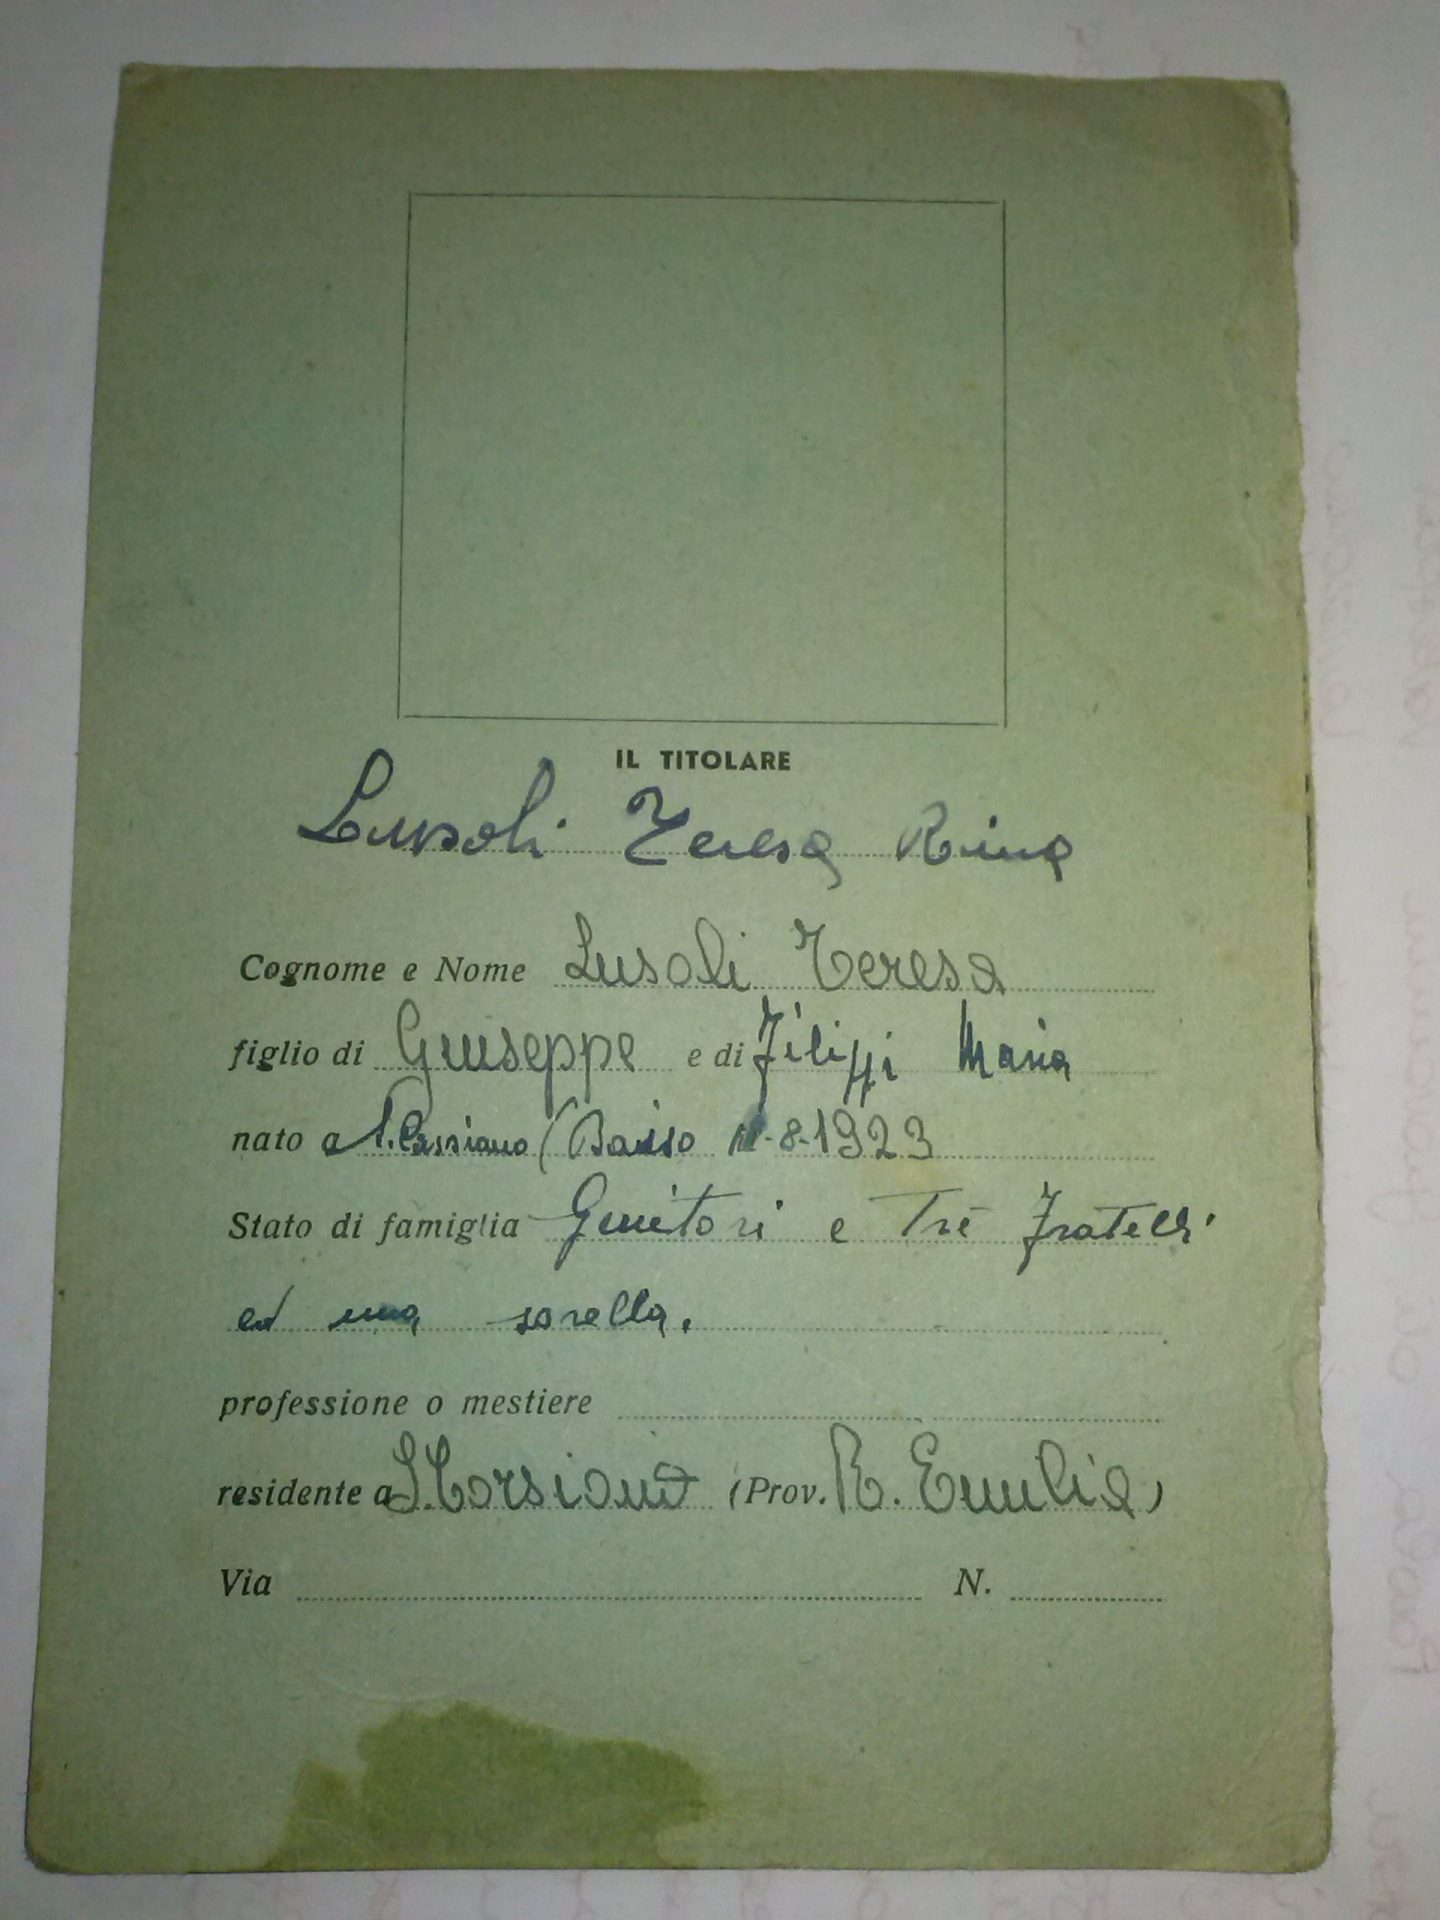 IL TITOLARE
Lusoli Teresa Rina
Cognome e Nome Lusoli Teresa
figlio di Giuseppe e di Filippi Maria
nato a S. Cassiano (Baiso -8-1923
Stato di famiglia Genitori e Tre Fratelli
ed una sorella.
professione o mestiere
residente a (Prov. R. Emilia)
Via N.